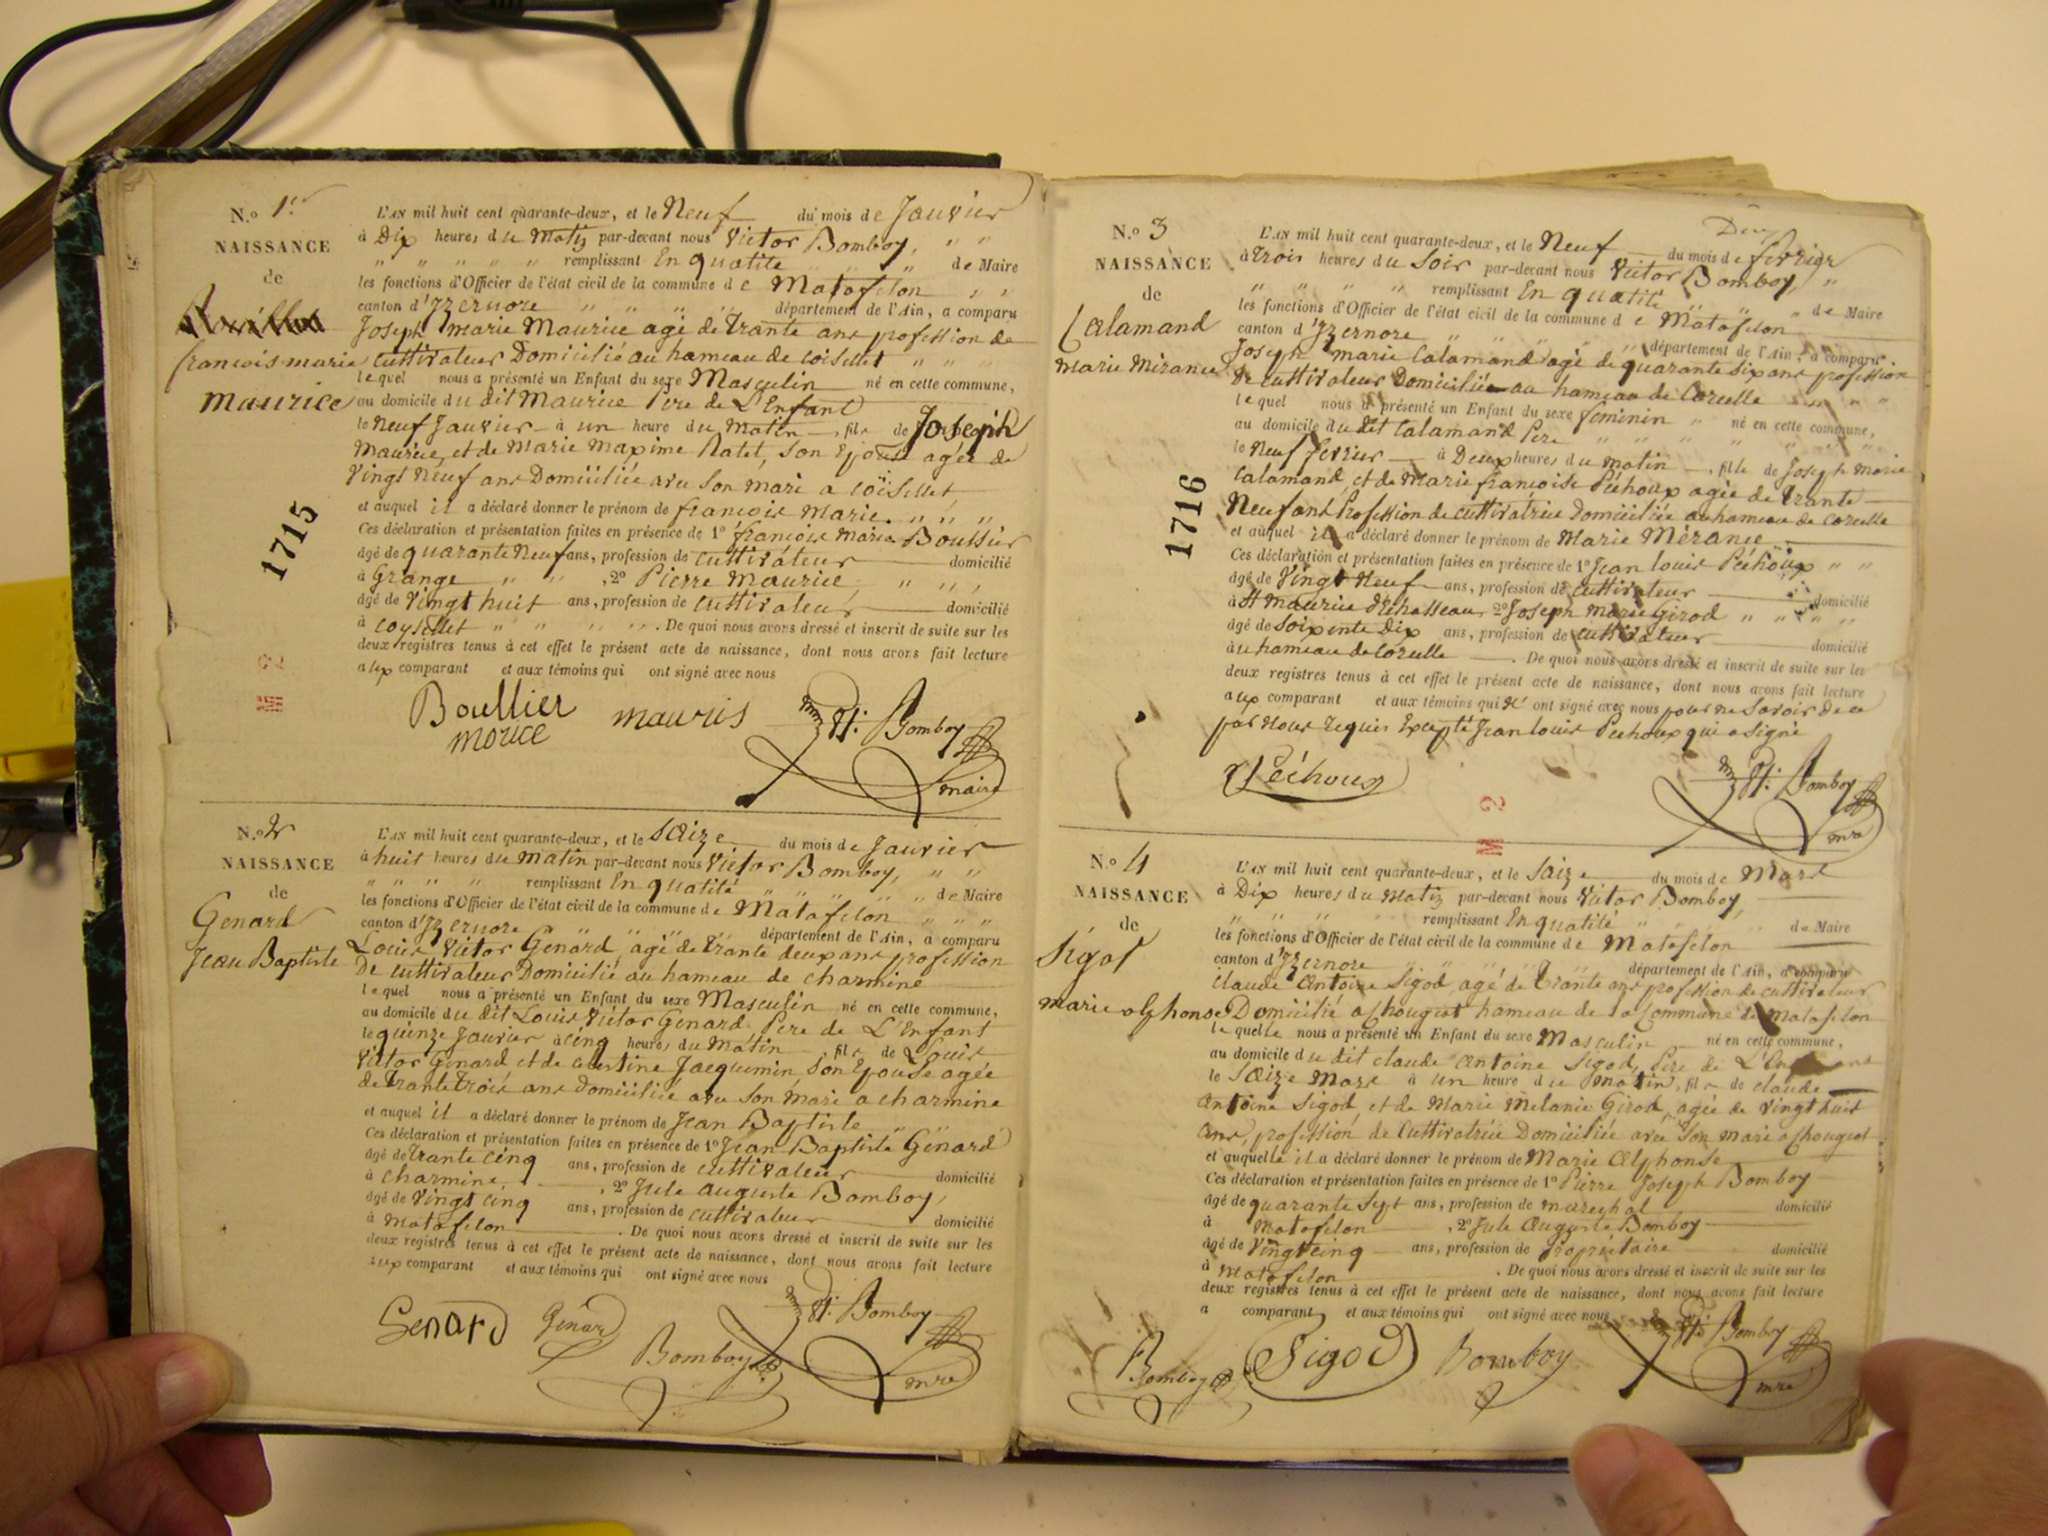 N.o 1.er
NAISSANCE
de
françois marie
maurice
L'AN mil huit cent quarante-deux, et le Neuf du mois de Janvier
à Dix heures du Matin par-devant nous Victor Bomboy, " "
" " " " " remplissant En qualité " " " de Maire
les fonctions d'Officier de l'état civil de la commune de Matafelon " "
canton d'Izernore " " " " département de l'Ain, a comparu
Joseph marie Maurice agé de trante ans profession de
Cultivateur Domicilié au hameau de coisellet " " "
lequel nous a présenté un Enfant du sexe Masculin né en cette commune,
au domicile du dit Maurice Pere de L'Enfant
le Neuf Janvier à un heure du matin, fils de Joseph
Maurice, et de Marie Maxime Ratet, son Epouse agée de
Vingt Neuf ans Domiciliée avec Son mari a coisellet
et auquel il a déclaré donner le prénom de françois Marie. " " "
Ces déclaration et présentation faites en présence de 1o françois Marie Boullier
âgé de quarante Neuf ans, profession de cultivateur domicilié
à Grange " " , 2o Pierre Maurice, " " "
âgé de Vingt huit ans, profession de cultivateur domicilié
à coysellet " " " " . De quoi nous avons dressé et inscrit de suite sur les
deux registres tenus à cet effet le présent acte de naissance, dont nous avons fait lecture
aux comparant et aux témoins qui ont signé avec nous
Boullier mauris Vt: Bomboy
morice
maire
1715
M 2
N.o 2
NAISSANCE
de
Genard
Jean Baptiste
L'AN mil huit cent quarante-deux, et le Saize du mois de Janvier
à huit heures du matin par-devant nous Victor Bomboy, " "
" " " " remplissant En qualité " " " de Maire
les fonctions d'Officier de l'état civil de la commune de Matafelon " " "
canton d'Izernore département de l'Ain, a comparu
Louis Victor Genard, agé de trante deux ans profession
De cultivateur Domicilié au hameau de charmine
lequel nous a présenté un Enfant du sexe Masculin né en cette commune,
au domicile du dit Louis Victor Genard Pere de L'Enfant
le quinze Janvier à cinq heures du Matin, fils de Louis
Victor Genard et de Jacquemin, son Epouse agée
de trante trois ans Domiciliée avec Son mari a charmine
et auquel il a déclaré donner le prénom de Jean Baptiste
Ces déclaration et présentation faites en présence de 1o Jean Baptiste Genard
âgé de trante cinq ans, profession de cultivateur domicilié
à charmine, , 2o Jule auguste Bomboy,
âgé de Vingt cinq ans, profession de cultivateur domicilié
à matafelon . De quoi nous avons dressé et inscrit de suite sur les
deux registres tenus à cet effet le présent acte de naissance, dont nous avons fait lecture
aux comparant et aux témoins qui ont signé avec nous
Genard Génard Bomboy Vt: Bomboy
mre
N.o 3
NAISSANCE
de
Calamand
Marie Mirance
L'AN mil huit cent quarante-deux, et le Neuf du mois de fevrier
à trois heures du Soir par-devant nous Victor Bomboy, "
" " " " remplissant En qualité " de Maire
les fonctions d'Officier de l'état civil de la commune de Matafelon
canton d'Izernore " " " département de l'Ain, a comparu
Joseph marie Calamand agé de quarante Six ans profession
de cultivateur Domicilié au hameau de Corcelle " " "
lequel nous a présenté un Enfant du sexe feminin " né en cette commune,
au domicile du dit Calamand Pere " " " " " "
le Neuf fevrier à Deux heures du matin, fille de Joseph Marie
Calamand, et de Marie françoise Péchoux agée de trante
Neuf ans Profession de cultivatrice Domiciliée au hameau de Corcelle
et auquel il a déclaré donner le prénom de Marie Mérance
Ces déclaration et présentation faites en présence de 1o Jean Louis Péchoux " "
âgé de Vingt Neuf ans, profession de cultivateur domicilié
à St Maurice d'Echasseau, 2o Joseph Marie Girod " " " "
âgé de Soixente Dix ans, profession de cultivateur domicilié
à u hameau de Corcelle . De quoi nous avons dressé et inscrit de suite sur les
deux registres tenus à cet effet le présent acte de naissance, dont nous avons fait lecture
aux comparant et aux témoins qui n' ont signé avec nous pour ne Savoir de ce
par Nous requis Excepté Jean Louis Péchoux qui a Signé
Péchoux Vt: Bomboy
mre
1716
M 2
N.o 4
NAISSANCE
de
Sigod
marie alphonse
L'AN mil huit cent quarante-deux, et le Saize du mois de Mars
à Dix heures du Matin par-devant nous Victor Bomboy,
" " " remplissant En qualité " " " de Maire
les fonctions d'Officier de l'état civil de la commune de Matafelon
canton d'Izernore département de l'Ain, a comparu
claude Antoine Sigod, agé de trante ans profession de cultivateur
Domicilié a chougeat hameau de la Commune de Matafelon
lequelle nous a présenté un Enfant du sexe Masculin né en cette commune,
au domicile du dit claude Antoine Sigod, Pere de L'Enfant
le Saize Mars à un heure du matin, fils de claude
Antoine Sigod, et de Marie Melanie Girod, agée de Vingt huit
ans, profession de Cultivatrice Domiciliée avec Son Mari a chougeat
et auquelle il a déclaré donner le prénom de Marie Alphonse
Ces déclaration et présentation faites en présence de 1o Pierre Joseph Bomboy
âgé de quarante Sept ans, profession de marechal domicilié
à Matafelon , 2o Jule Auguste Bomboy
âgé de Vingt cinq ans, profession de Propriétaire domicilié
à Matafelon . De quoi nous avons dressé et inscrit de suite sur les
deux registres tenus à cet effet le présent acte de naissance, dont nous avons fait lecture
a comparant et aux témoins qui ont signé avec nous
Bomboy Sigod Bomboy Vt: Bomboy
mre